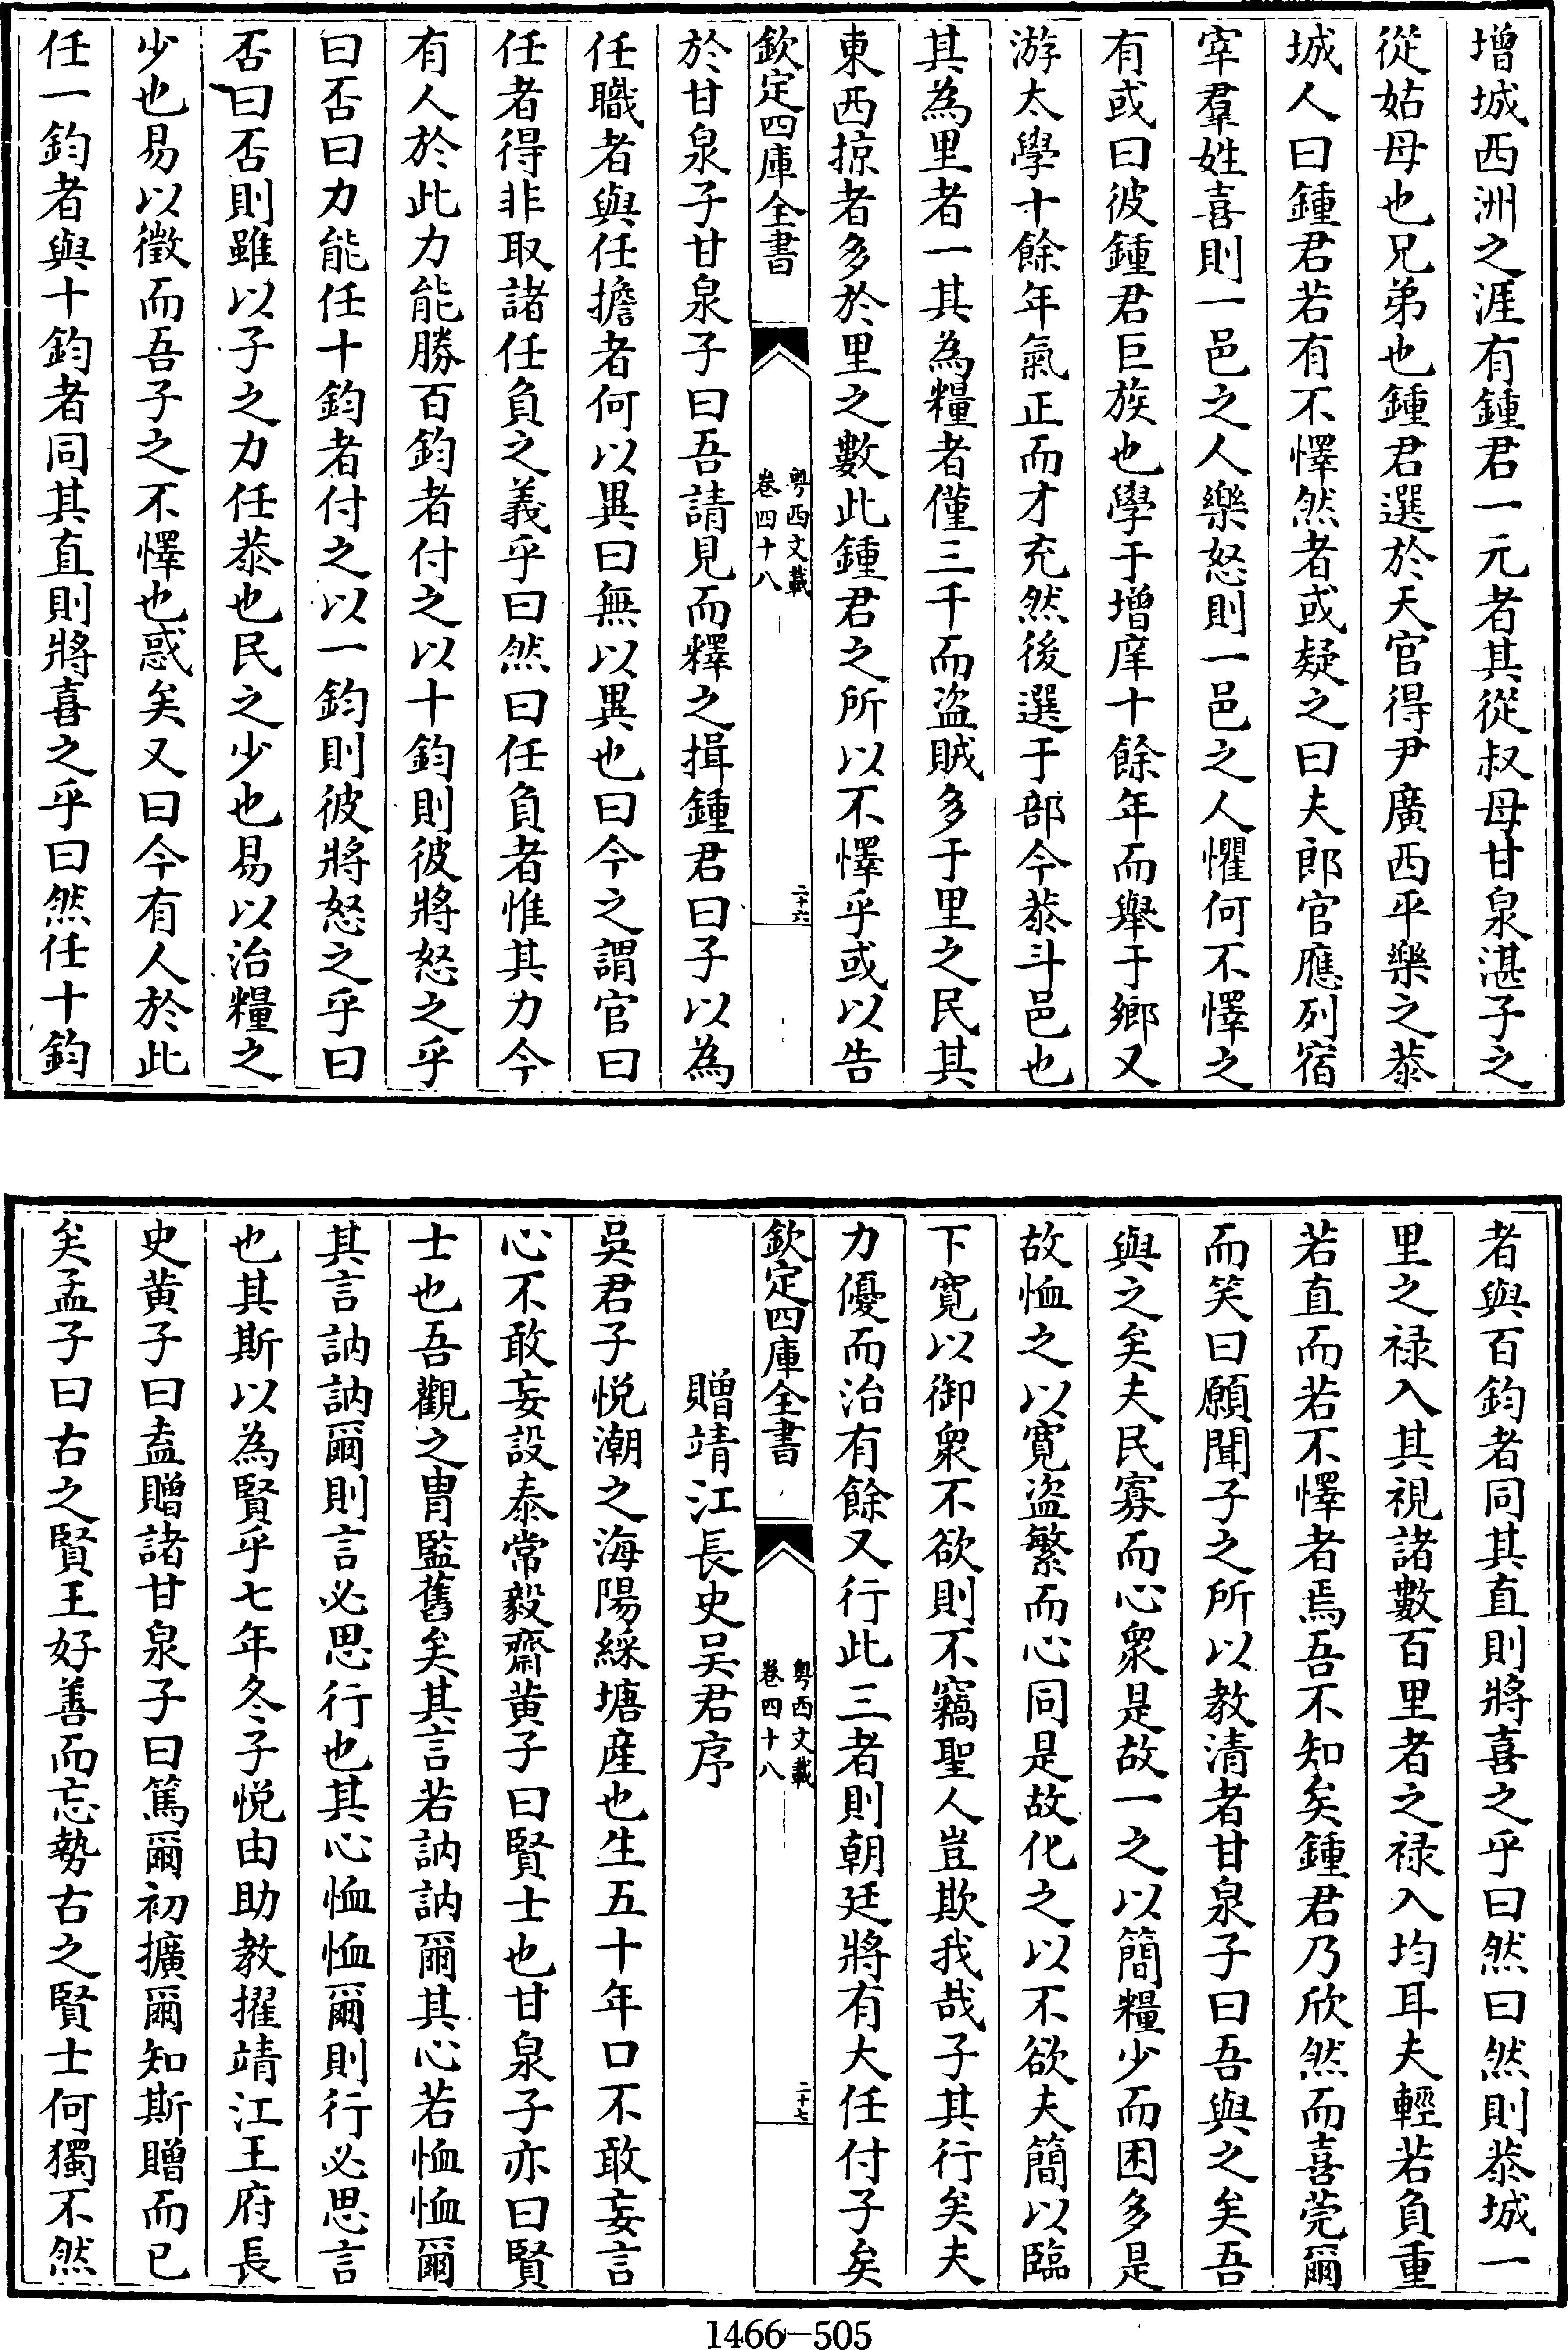 增城西洲之涯有鍾君一元者其從叔母甘泉湛子之
從姑母也兄弟也鍾君選於天官得尹廣西平樂之㳟
城人曰鍾君若有不懌然者或疑之曰夫郎官應列宿
宰羣姓喜則一邑之人樂怒則一邑之人懼何不懌之
有或曰彼鍾君巨族也學于增庠十餘年而舉于鄉又
游太學十餘年氣正而才充然後選于部今㳟斗邑也
其為里者一其為糧者僅三千而盜賊多于里之民其
東西掠者多於里之數此鍾君之所以不懌乎或以告
欽定四庫全書
粤西文載
卷四十八
二十六
於甘泉子甘泉子曰吾請見而釋之揖鍾君曰子以為
任職者與任擔者何以異曰無以異也曰今之謂官曰
任者得非取諸任負之義乎曰然曰任負者惟其力今
有人於此力能勝百鈞者付之以十鈞則彼將怒之乎
曰否曰力能任十鈞者付之以一鈞則彼將怒之乎曰
否曰否則雖以子之力任㳟也民之少也易以治糧之
少也易以徵而吾子之不懌也惑矣又曰今有人於此
任一鈞者與十鈞者同其直則將喜之乎曰然任十鈞
者與百鈞者同其直則將喜之乎曰然曰然則㳟城一
里之禄入其視諸數百里者之禄入均耳夫輕若負重
若直而若不懌者焉吾不知矣鍾君乃欣然而喜莞爾
而笑曰願聞子之所以教清者甘泉子曰吾與之矣吾
與之矣夫民寡而心衆是故一之以簡糧少而困多是
故恤之以寛盜繁而心同是故化之以不欲夫簡以臨
下寛以御衆不欲則不竊聖人豈欺我哉子其行矣夫
力優而治有餘又行此三者則朝廷將有大任付子矣
欽定四庫全書
粤西文載
卷四十八
二十七
贈靖江長史吴君序
吳君子悦潮之海陽綵塘産也生五十年口不敢妄言
心不敢妄設泰常毅齋黄子曰賢士也甘泉子亦曰賢
士也吾觀之胄監舊矣其言若訥訥爾其心若恤恤爾
其言訥訥爾則言必思行也其心恤恤爾則行必思言
也其斯以為賢乎七年冬子悦由助教擢靖江王府長
史黄子曰盍贈諸甘泉子曰篤爾初擴爾知斯贈而已
矣孟子曰古之賢王好善而忘勢古之賢士何獨不然
1466—505